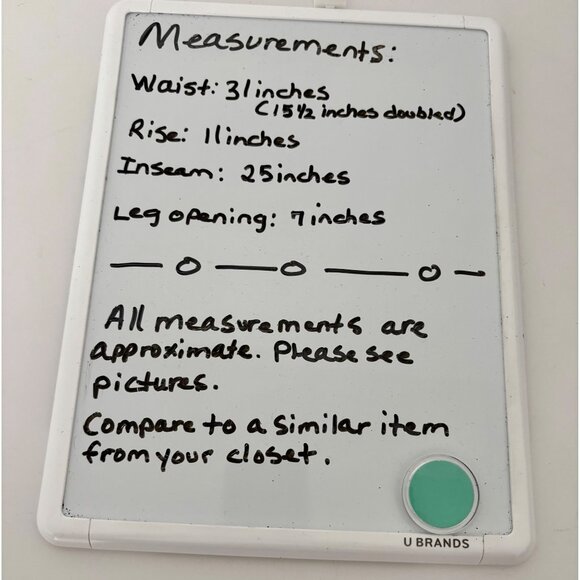 Measurements:
Waist: 31inches
(15 1/2 inches doubled)
Rise: 11inches
Inseam: 25inches
Leg opening: 7inches
All measurements are
approximate. Please see
pictures.
Compare to a similar item
from your closet.
U BRANDS